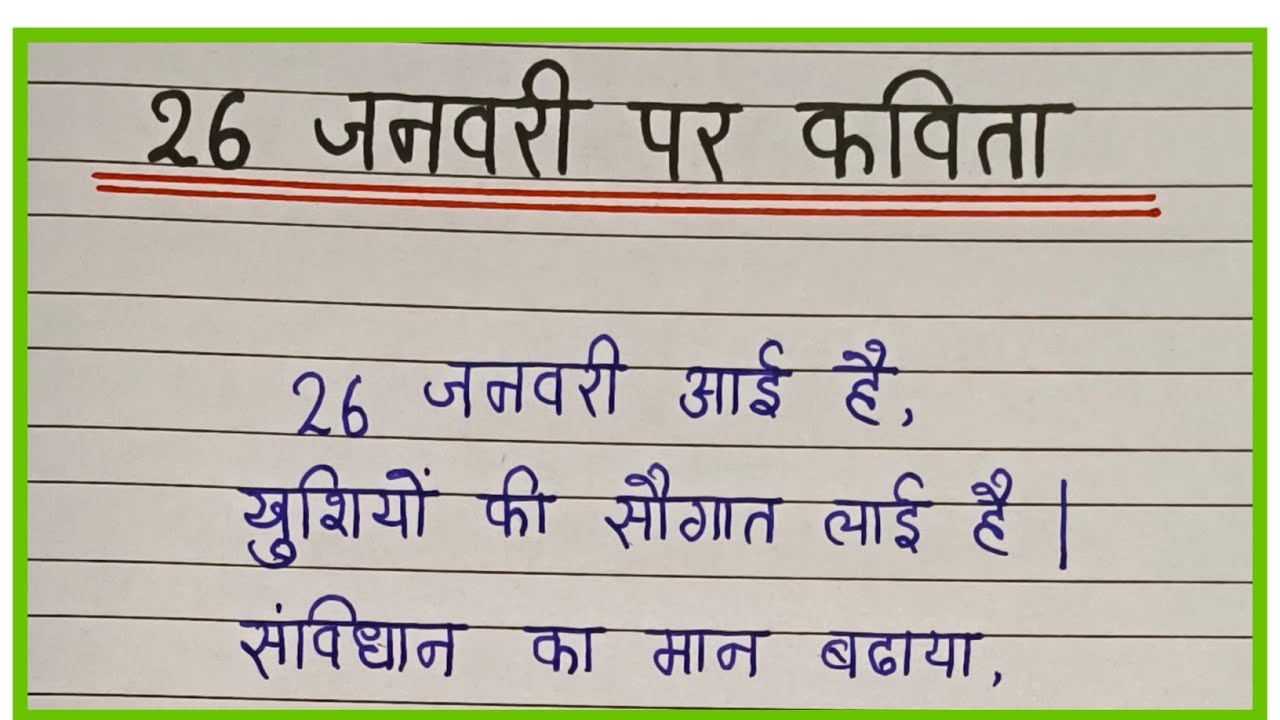 26 जनवरी पर कविता
26 जनवरी आई है,
खुशियों की सौगात लाई है |
संविधान का मान बढाया,